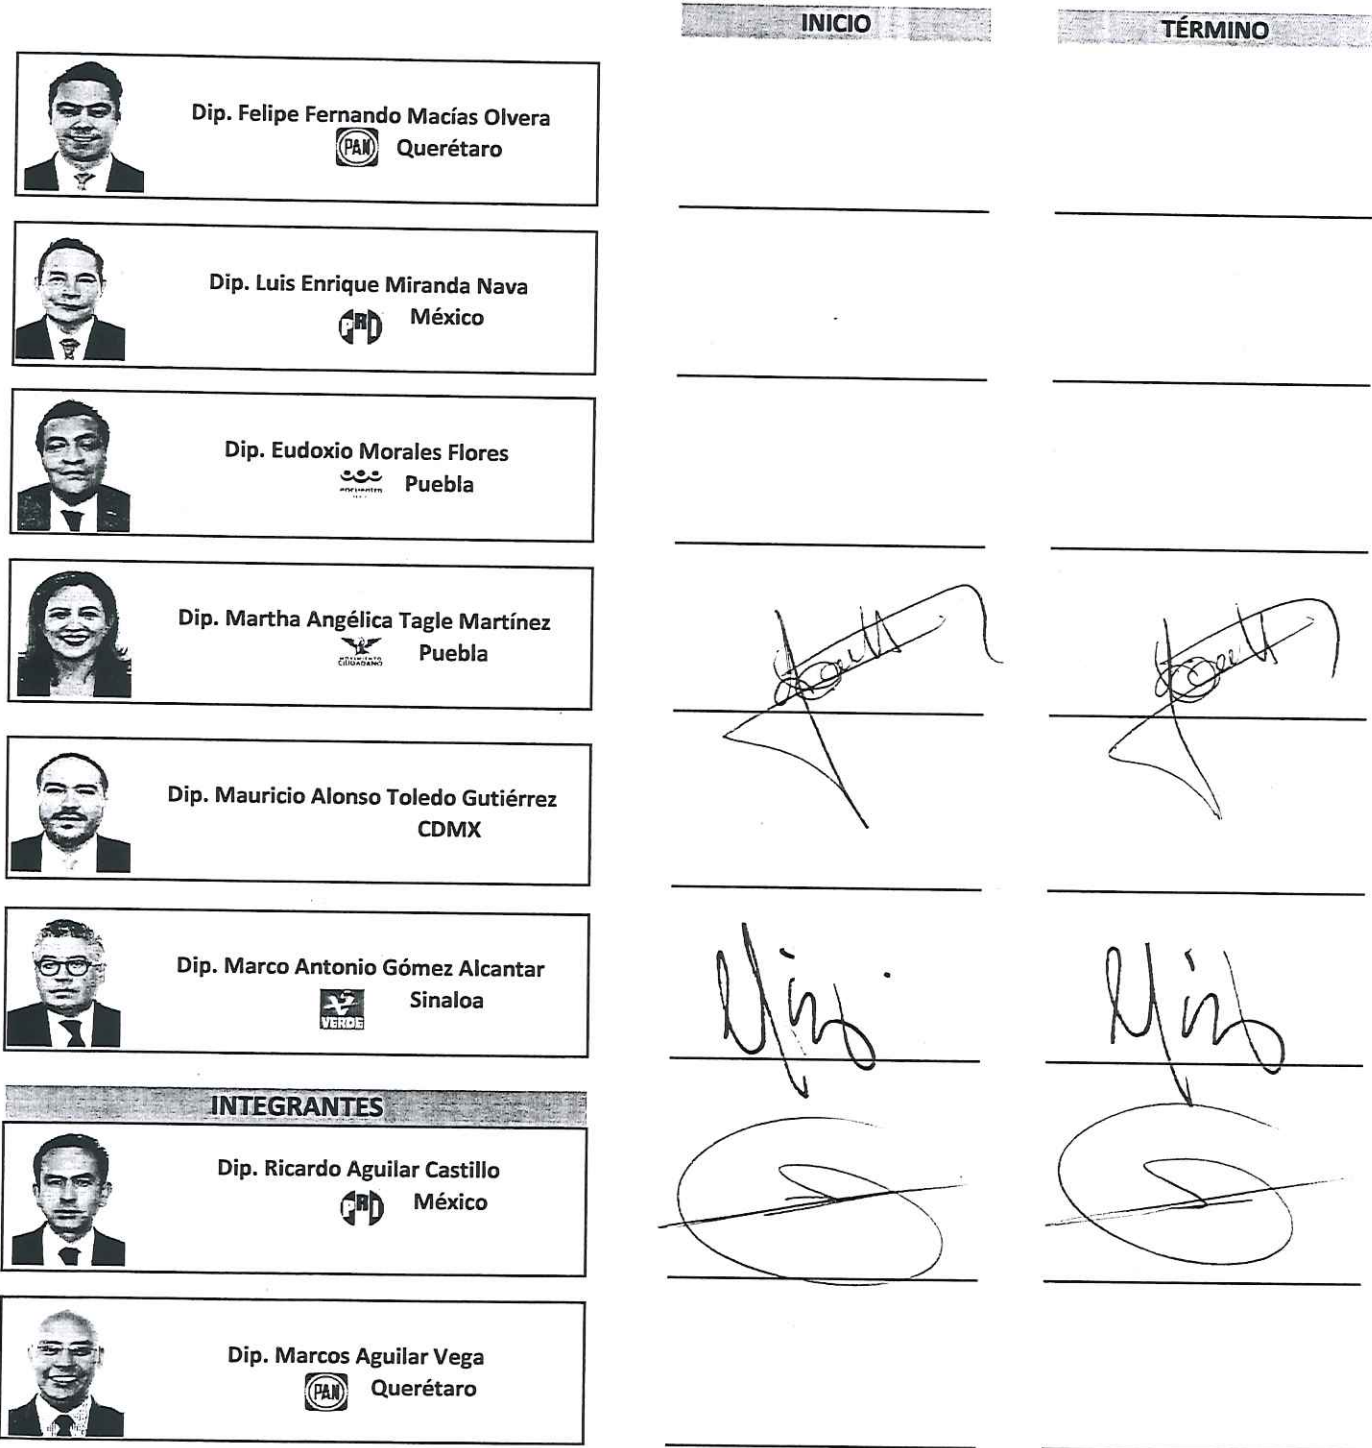 INICIO
TÉRMINO
Dip. Felipe Fernando Macías Olvera
PAN Querétaro
Dip. Luis Enrique Miranda Nava
PRI México
Dip. Eudoxio Morales Flores
encuentro Puebla
Dip. Martha Angélica Tagle Martínez
MOVIMIENTO
CIUDADANO
Puebla
Dip. Mauricio Alonso Toledo Gutiérrez
CDMX
Dip. Marco Antonio Gómez Alcantar
VERDE Sinaloa
INTEGRANTES
Dip. Ricardo Aguilar Castillo
PRI México
Dip. Marcos Aguilar Vega
PAN Querétaro